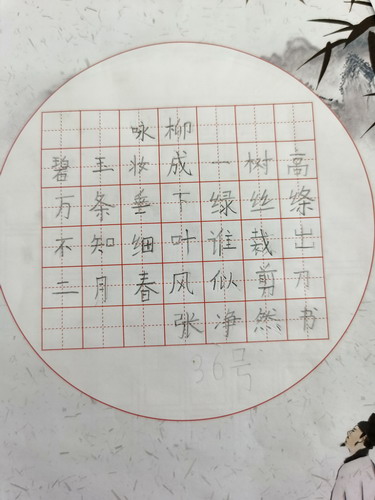 咏柳
碧玉妆成一树高
万条垂下绿丝绦
不知细叶谁裁出
二月春风似剪刀
张净然书
36号